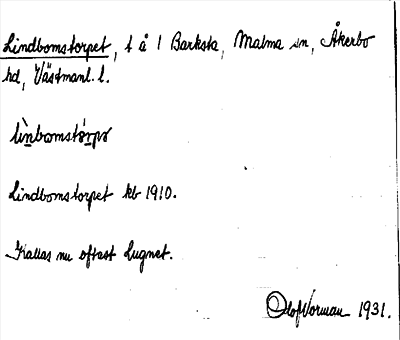 Lindbomstorpet, t å 1 Barksta, Malma sn, Åkerbo
hd, Västmanl. l.
Lindbomstorpet kb 1910.
Kallas nu oftast Lugnet.
Olof Norman 1931.